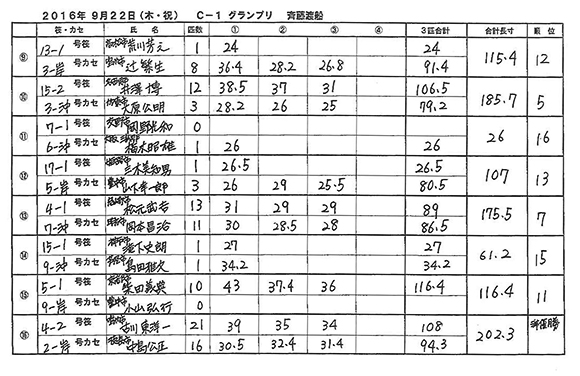 2016年 9月22日(木・祝) C-1 グランプリ 斉藤渡船
筏・カセ 氏 名 匹数 ① ② ③ 3匹合計 合計長寸 順 位
⑨ 13-1 号筏 荒川芳元 1 24 24 115.4 12
3-岸 号カセ 辻繁生 8 36.4 28.2 26.8 91.4
⑩ 15-2 号筏 井澤 博 12 38.5 37 31 106.5 185.7 5
3-沖 号カセ 大原公明 3 28.2 26 25 79.2
⑪ 7-1 号筏 岡野光和 0 26 16
6-沖 号カセ 柏木昭雄 1 26 26
⑫ 17-1 号筏 三木美知男 1 26.5 26.5 107 13
5-岸 号カセ 山本幸一郎 3 26 29 25.5 80.5
⑬ 4-1 号筏 松元 13 31 29 29 89 175.5 7
7-沖 号カセ 岡本昌治 11 30 28.5 28 86.5
⑭ 15-1 号筏 1 27 27 61.2 15
9-沖 号カセ 島田雅次 1 34.2 34.2
⑮ 5-1 号筏 柴田義典 10 43 37.4 36 116.4 116.4 11
9-岸 号カセ 小山弘行 0
⑯ 4-2 号筏 古川東洋一 21 39 35 34 108 202.3 準優勝
2-岸 号カセ 中島公正 16 30.5 32.4 31.4 94.3